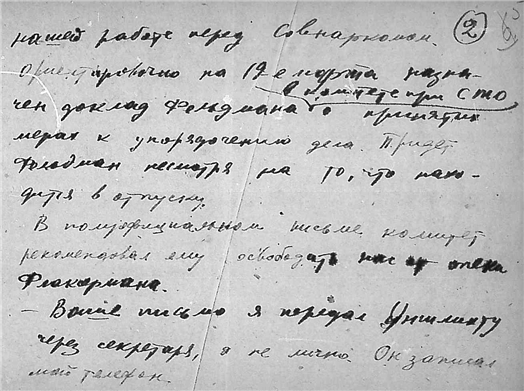 2
нашей работе перед Совнаркомом.
Ориентировочно на 19е марта назна-
в комитете при СТО
чен доклад Фельдмана о принятых
мерах к упорядочению дела. Придет
Фельдман несмотря на то, что нахо-
дится в отпуску.
В полуофициальном письме комитет
рекомендовал ему освободить нас от опеки
Флаксермана.
– Ваше письмо я передал Уншлихту
через секретаря, а не лично. Он записал
мой телефон.